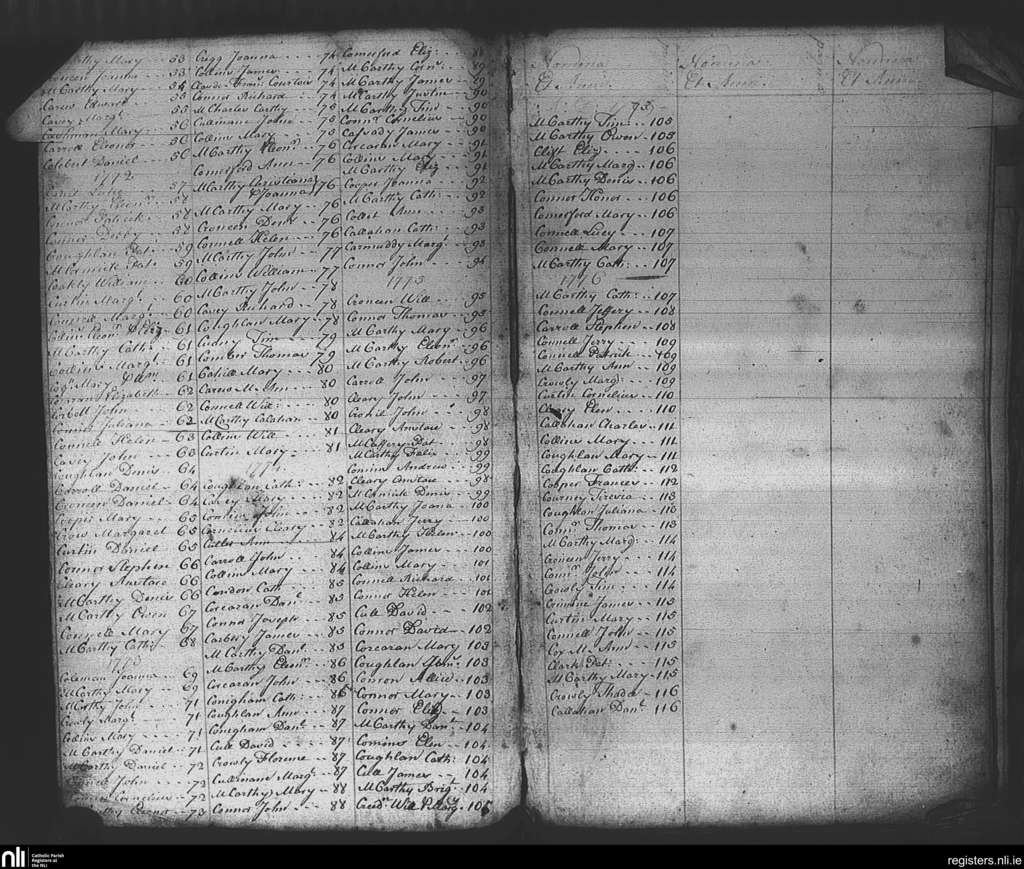 McCarthy Mary 53
Joanna 53
McCarthy Mary 54
Carew Edward 55
Cavey Marg.t 55
Cashman Mary 56
Carroll Elenor 56
Colbert Daniel 56
1772
57
McCarthy Eleon.r 58
Connor Patrick 58
Connor Derby 58
Coughlan Pat 59
McCormick Pat 59
Coakly William 60
Curtin Marg.t 60
Connell Marg.t 60
61
McCarthy Cath: 61
Collins Marg.t 61
Mary 61
Elizabeth 62
Corbett John 62
Connor Juliana 62
Connell Helen 63
Cavey John 63
Coughlan Denis 64
Carroll Daniel 64
Croneen Daniel 64
Cooper Mary 65
Crow Margaret 65
Curtin Daniel 65
Connor Stephen 66
Cleary Anstace 66
McCarthy Denis 66
McCarthy Owen 67
Connell Mary 67
McCarthy Cath: 68
1773
Coleman Joanna 69
McCarthy Mary 69
McCarthy John 71
Crowly Marg.t 71
Collins Mary 71
McCarthy Daniel 71
McCarthy Daniel 72
John 72
Cornelius 72
McCarthy Elenor 73
Cregg Joanna 74
Collins James 74
Claude Fran.s Courtain 74
Connor Richard 74
McCharles Carthy 75
Cullinane John 75
Collins Mary 75
McCarthy Eleon.r 76
Comerford Ann 76
McCarthy Christiana & Joanna 76
McCarthy Mary 76
Croneen Denis 76
Connell Helen 76
McCarthy John 77
Collins William 77
McCarthy John 78
Cavey Richard 78
Coughlan Mary 78
Tim 79
Thomas 79
Cahill Mary 80
Carew Ann 80
Connell Will: 80
McCarthy Calahan 80
Collins Will 81
Curtin Mary 81
1774
Coughlan Cath: 82
Cavey Mary 82
John 82
Cornelius Cleary 82
Collet Ann 84
Carroll John 84
Collins Mary 84
Condon Cath: 85
Corcoran Dan.l 85
Connor Joseph 85
Carbery James 85
McCarthy Dan.l 85
McCarthy Eleon.r 86
Corcoran John 86
Conigham Cath: 86
Coughlan Ann 87
Conigham Dan.l 87
Cull David 87
Crowly Florence 87
Cullinane Marg.t 87
McCarthy Mary 88
Connor John 88
Comerford Eliz: 88
McCarthy Corn.s 89
McCarthy James 89
McCarthy Justin 90
McCarthy Tim 90
Conn.r Cornelius 90
James 90
Corcoran Mary 91
Collins Mary 91
McCarthy Eliz 91
Cooper Joanna 92
McCarthy Cath: 92
Collet Ann 93
Callahan Cath: 93
Carmuddy Marg.t 93
Connor John 94
1775
Croneen Will 95
Connor Thomas 95
McCarthy Mary 96
McCarthy Eleon.r 96
McCarthy Robert 96
Carroll John 97
Cleary John 97
John 98
Cleary Anstace 98
McCaffery Pat 98
McCarthy Felix 99
Comins Andrew 99
Cleary Anstace 98
McCormick Denis 99
McCarthy Joana 100
Callahan Jerry 100
McCarthy Helen 100
Collins James 100
Collins Mary 101
Connell Richard 101
Connor Helen 101
Cull David 102
Connor David 102
Corcoran Mary 103
Coughlan 103
Conron Alice 103
Connor Mary 103
Connor Eliz 103
McCarthy Dan.l 104
Comins Elen 104
Coughlan Cath: 104
Cull James 104
McCarthy Brig.t 104
Will & Marg.t 105
Nomina Et Anni
Nomina Et Anni
Nomina Et Anni
75
McCarthy Tim: 105
McCarthy Owen 105
Clift Eliz 106
McCarthy Marg 106
McCarthy Denis 106
Connor Honor 106
Comerford Mary 106
Connell Lucy 107
Connell Mary 107
McCarthy Cath: 107
1776
McCarthy Cath: 107
Connell Jeffery 108
Carroll Stephen 108
Connell Jerry 109
Connell Patrick 109
McCarthy Ann 109
Crowly Marg: 109
Curtin Cornelius 110
Cleary Elen 110
Callahan Charles 111
Collins Mary 111
Coughlan Mary 111
Coughlan Cath: 112
Cooper Frances 112
Courney Teresia 113
Coughlan Juliana 113
Conn.r Thomas 113
McCarthy Marg: 114
Croneen Jerry 114
Conn.r John 114
Crowly Tim 114
Comins James 115
Curtin Mary 115
Connell John 115
Coy M. Ann 115
Clark Pat: 115
McCarthy Mary 115
Crowly Thade 116
Callahan Dan.l 116
nli
Catholic Parish Registers at the NLI
registers.nli.ie